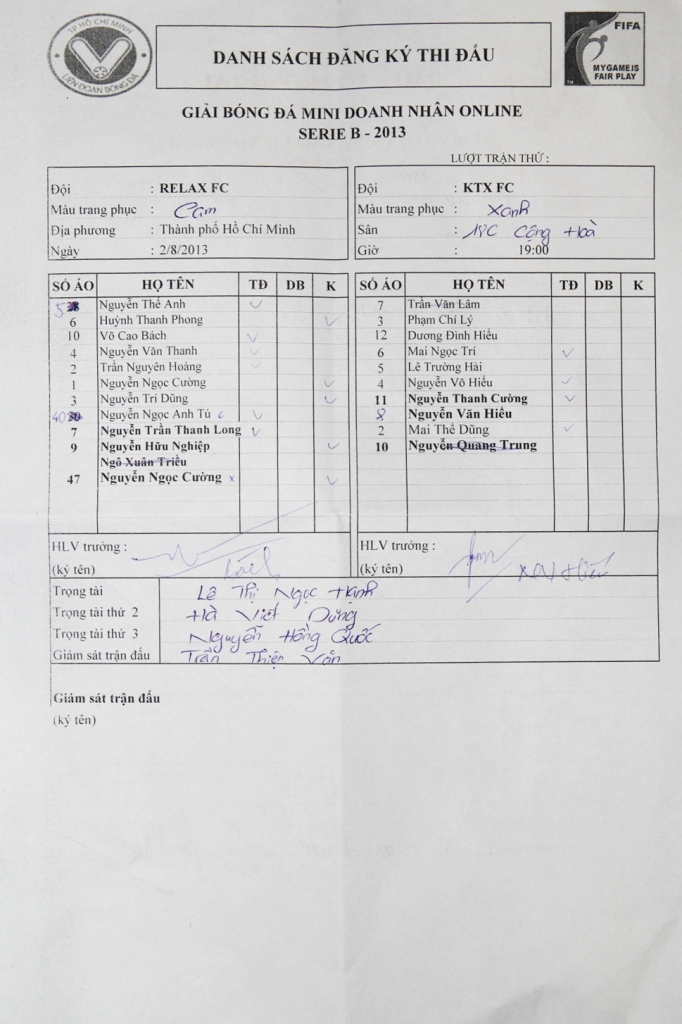 TP HỒ CHÍ MINH
LIÊN ĐOÀN BÓNG ĐÁ
DANH SÁCH ĐĂNG KÝ THI ĐẤU
FIFA
MY GAME IS
FAIR PLAY
GIẢI BÓNG ĐÁ MINI DOANH NHÂN ONLINE
SERIE B - 2013
LƯỢT TRẬN THỨ :
Đội : RELAX FC
Màu trang phục : Cam
Địa phương : Thành phố Hồ Chí Minh
Ngày : 2/8/2013
Đội : KTX FC
Màu trang phục : Xanh
Sân : Cộng Hoà
Giờ : 19:00
SỐ ÁO HỌ TÊN TĐ DB K
Nguyễn Thế Anh
6 Huỳnh Thanh Phong
10 Võ Cao Bách
4 Nguyễn Văn Thanh
2 Trần Nguyên Hoàng
1 Nguyễn Ngọc Cường
3 Nguyễn Trí Dũng
Nguyễn Ngọc Anh Tú c
7 Nguyễn Trần Thanh Long
9 Nguyễn Hữu Nghiệp
Ngô Xuân Triều
47 Nguyễn Ngọc Cường x
SỐ ÁO HỌ TÊN TĐ DB K
7 Trần Văn Lâm
3 Phạm Chí Lý
12 Dương Đình Hiếu
6 Mai Ngọc Trí
5 Lê Trường Hải
4 Nguyễn Võ Hiếu
11 Nguyễn Thanh Cường
8 Nguyễn Văn Hiếu
2 Mai Thế Dũng
10 Nguyễn Quang Trung
HLV trưởng :
(ký tên)
HLV trưởng :
(ký tên)
Trọng tài Lê Thị Ngọc Hạnh
Trọng tài thứ 2 Hà Việt Dũng
Trọng tài thứ 3 Nguyễn Hồng Quốc
Giám sát trận đấu Trần Thiện Văn
Giám sát trận đấu
(ký tên)